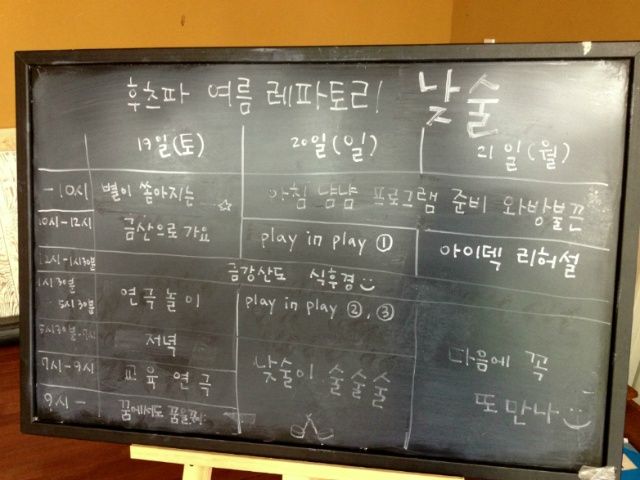 후츠파 여름 레파토리! 낮술
19일(토) 20일(일) 21일(월)
-10시 별이 쏟아지는 아침 냠냠 프로그램 준비 와방발끈
10시-12시 금산으로 가요 play in play ① 아이덱 리허설
12시-1시30분 금강산도 식후경
1시30분 5시30분 연극놀이 play in play ②,③
5시30분-7시 저녁 낮술이 술술술 다음에 꼭
7시-9시 교육 연극 또 만나
9시- 꿈에서도 꿈을꿈